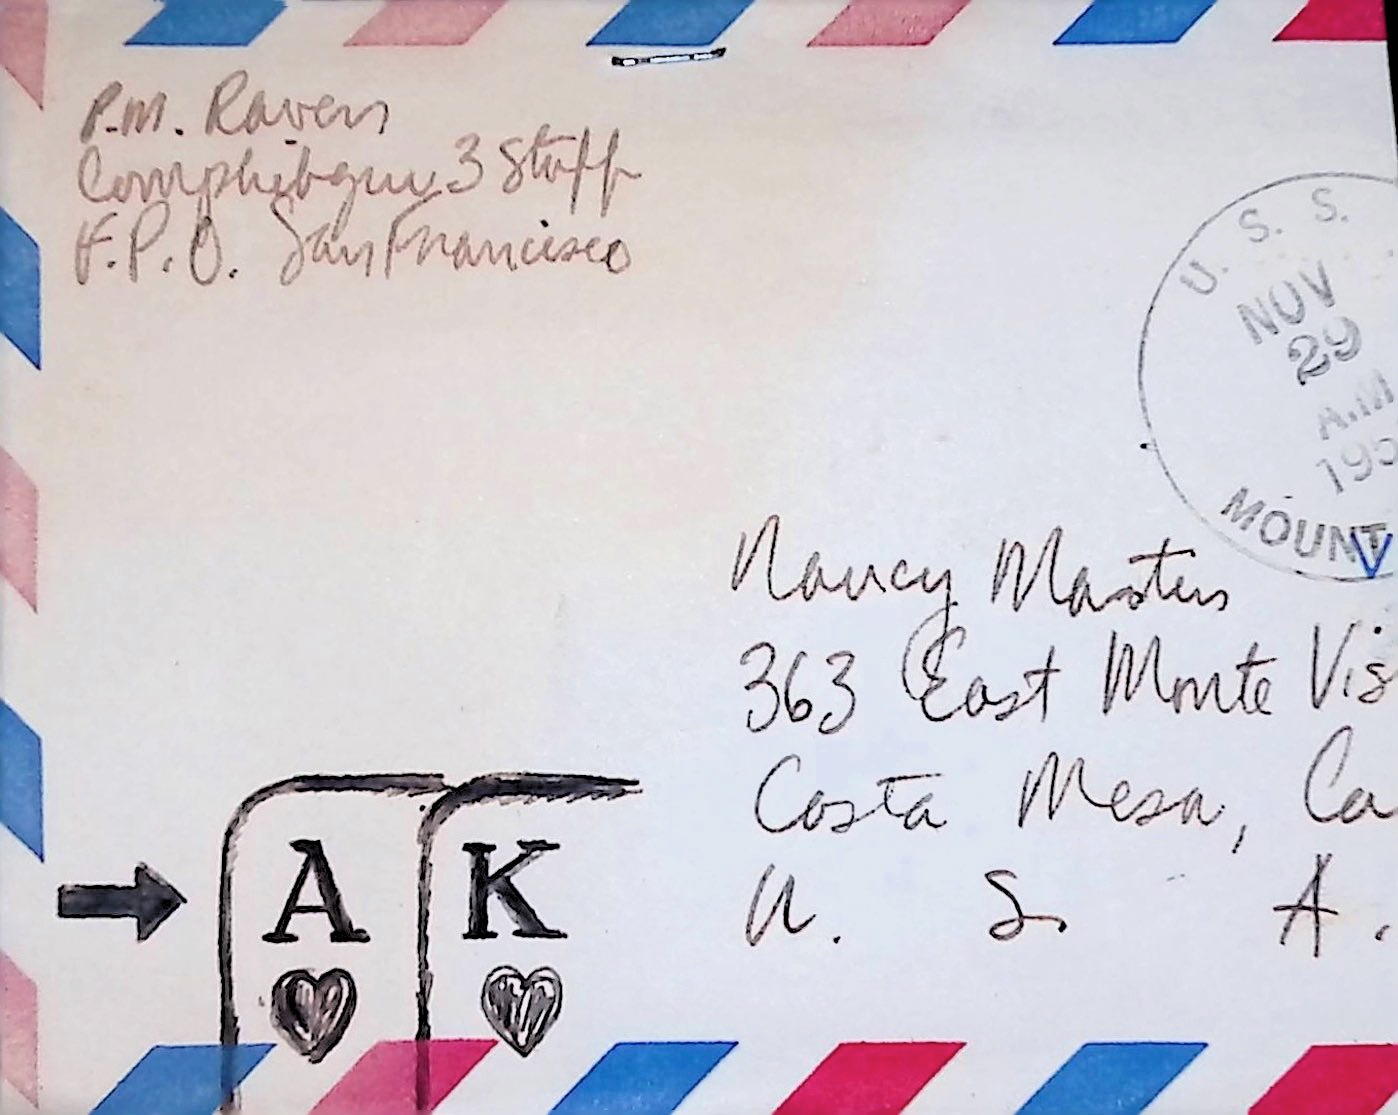 P.M. Ravens
Comphibgru 3 Staff
F.P.O. San Francisco
U. S. S.
NOV
29
A.M
195
MOUNT
Nancy Masters
363 East Monte Vis
Costa Mesa, Ca
U. S. A.
A K